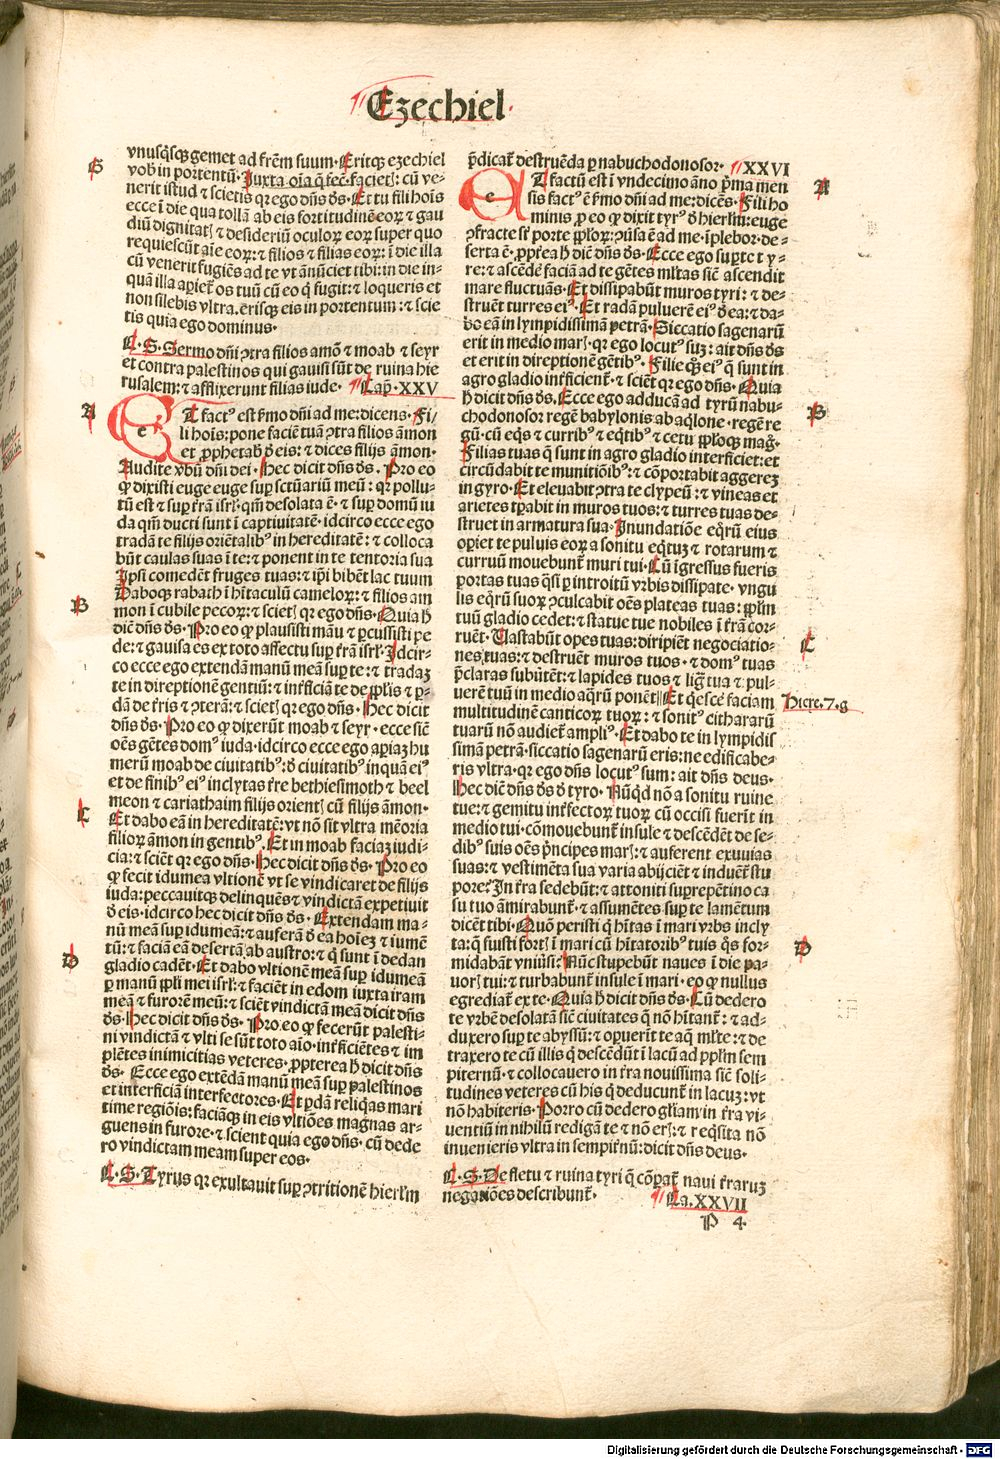 Ezechiel
G
vnusqͥsqꝫ gemet ad fr̄em suum. Eritqꝫ ezechiel
vob̄ in portentū. Juxta oīa q̄ fec̄. facietꝭ: cū ve-
nerit istud ⁊ scietis qꝛ ego dn̄s d̄s. Et tu fili hoīs
ecce ī die qua tollā ab eis fortitudinē eoꝝ ⁊ gau
diū dignitatꝭ ⁊ desideriū oculoꝝ eoꝝ super quo
requiescūt aīe eoꝝ: ⁊ filios ⁊ filias eoꝝ: ī die illa
cū venerit fugiēs ad te vt ānūciet tibi: in die in-
quā illa aꝑiet̄ os tuū cū eo q̄ fugit: ⁊ loqueris et
non silebis vltra. ērisqꝫ eis in portentum: ⁊ scie
tis quia ego dominus.
C. S. Sermo dn̄i ꝯtra filios amō ⁊ moab ⁊ seyr
et contra palestinos qui gauisi sūt de ruina hie
rusalem: ⁊ afflixerunt filias iude. Cap̄. XXV
A
e Et fact⁹ est ꝟmo dn̄i ad me: dicens. Fi/
li hoīs: pone faciē tuā ꝯtra filios āmon
et ꝓphetab̄ d̄ eis: ⁊ dices filijs āmon.
Audite vbū dn̄i dei. Hec dicit dn̄s d̄s. Pro eo
ꝙ dixisti euge euge suꝑ sctūariū meū: qꝛ pollu-
tū est ⁊ suꝑ t̄rā isrł. qm̄ desolata ē. ⁊ suꝑ domū iu
da qm̄ ducti sunt ī captiuitatē. idcirco ecce ego
tradā te filijs oriētalib⁹ in hereditatē: ⁊ colloca
būt caulas suas ī te: ⁊ ponent in te tentoria sua
Ipsi comedēt fruges tuas: ⁊ ip̄i bibēt lac tuum
Daboqꝫ rabach ī hītaculū cameloꝝ: ⁊ filios am
B
mon ī cubile pecoꝝ: ⁊ scietꝭ qꝛ ego dn̄s. Quia h̄
dic̄ dn̄s d̄s. Pro eo ꝙ plausisti māu ⁊ ꝑcussisti pe
de: ⁊ gauisa es ex toto affectu suꝑ t̄rā isrł. Idcir-
co ecce ego extendā manū meā suꝑ te: ⁊ tradaꝫ
te in direptionē gentiū: ⁊ int̄ficiā te de ꝓplis ⁊ ꝑ-
dā de t̄ris ⁊ ꝯterā: ⁊ scietꝭ qꝛ ego dn̄s. Hec dicit
dn̄s d̄s. Pro eo ꝙ dixerūt moab ⁊ seyr. ecce sic̄
oēs gētes dom⁹ iuda. idcirco ecce ego aꝑiaꝫ hu
merū moab de ciuitatib⁹: d̄ ciuitatib⁹ inquā ei⁹
et de finib⁹ ei⁹ inclytas t̄re bethiesimoth ⁊ beel
meon ⁊ cariathaim filijs orientꝭ cū filijs āmon.
C
Et dabo eā in hereditatē: vt nō sit vltra mēoria
filioꝝ āmon in gentib⁹. Et in moab faciaꝫ iudi-
cia: ⁊ sciēt qꝛ ego dn̄s. Hec dicit dn̄s d̄s. Pro eo
ꝙ fecit idumea vltionē vt se vindicaret de filijs
iuda: peccauitqꝫ delinquēs ⁊ vindictā expetiuit
d̄ eis. idcirco hec dicit dn̄s d̄s. Extendam ma-
nū meā suꝑ idumeā: ⁊ auferā d̄ ea hoīeꝫ ⁊ iumē
D
tū: ⁊ faciā eā desertā ab austro: ⁊ q̄ sunt ī dedan
gladio cadēt. Et dabo vltionē meā suꝑ idumeā
ꝑ manū ꝓpli mei isrł: ⁊ faciēt in edom iuxta iram
meā ⁊ furorē meū: ⁊ sciēt vindictā meā dicit dn̄s
d̄s. Hec dicit dn̄s d̄s. Pro eo ꝙ fecerūt palesti-
ni vindictā ⁊ vlti se sūt toto aīo. int̄ficiētes ⁊ im
plētes inimicitias veteres. ꝓpterea h̄ dicit dn̄s
d̄s. Ecce ego extēdā manū meā suꝑ palestinos
et interficiā interfectores. Et ꝑdā reliqͥas mari
time regiōis: faciāqꝫ in eis vltiōes magnas ar-
guens in furore. ⁊ scient quia ego dn̄s. cū dede
ro vindictam meam super eos.
C. S. Tyrus qꝛ exultauit suꝑ ꝯtritionē hierłm
p̄dicat̄ destruēda ꝑ nabuchodonosor. XXVI
A
e Et factū est ī vndecimo āno p̄ma men
sis fact⁹ ē ꝟmo dn̄i ad me: dicēs. Fili ho
minis ꝓ eo ꝙ dixit tyr⁹ d̄ hierłm: euge
ꝯfracte sr̄ porte ꝓploꝝ: ꝯūsa ē ad me. īplebor. de-
serta ē. ꝓpt̄ea h̄ dic̄ dn̄s d̄s. Ecce ego suꝑ te ty-
re: ⁊ ascēdē faciā ad te gētes mł̄tas sic̄ ascendit
mare fluctuās. Et dissipabūt muros tyri: ⁊ de-
struēt turres ei⁹. Et radā puluerē ei⁹ d̄ ea: ⁊ da-
bo eā in lympidissimā petrā. Siccatio sagenarū
erit in medio marꝭ. qꝛ ego locut⁹ suꝫ: ait dn̄s d̄s
et erit in direptionē gētib⁹. Filie qͦꝫ ei⁹ q̄ sunt in
agro gladio int̄ficient̄. ⁊ sciēt qꝛ ego dn̄s. Quia
B
h̄ dicit dn̄s d̄s. Ecce ego adducā ad tyrū nabu-
chodonosor regē babylonis ab aqͥlone. regē re
gū. cū eqͥs ⁊ currib⁹ ⁊ eqͥtib⁹ ⁊ cetu ꝓploqꝫ mag̊.
Filias tuas q̄ sunt in agro gladio interficiet: et
circūdabit te munitiōib⁹: ⁊ cōportabit aggereꝫ
in gyro. Et eleuabit ꝯtra te clypeū: ⁊ vineas et
arietes tꝑabit in muros tuos: ⁊ turres tuas de-
struet in armatura sua. Inundatiōe eqͦrū eius
oꝑiet te puluis eoꝝ a sonitu eqͥtuꝫ ⁊ rotarum ⁊
curruū mouebunt̄ muri tui. Cū īgressus fueris
portas tuas qͣsi ꝑ introitū vrbis dissipate. vngu
lis eqͦrū suoꝝ ꝯculcabit oēs plateas tuas: ꝓpłm
C
tuū gladio cedet: ⁊ statue tue nobiles ī t̄rā cor-
ruēt. Uastabūt opes tuas: diripiēt negociatio-
nes tuas: ⁊ destruēt muros tuos. ⁊ dom⁹ tuas
p̄claras subūtēt: ⁊ lapides tuos ⁊ lig̊ tua ⁊ pul-
uerē tuū in medio aqͣrū ponēt Et qͥescē faciam
Hiere. 7. g
multitudinē canticoꝝ tuoꝝ: ⁊ sonit⁹ cithararū
tuarū nō audiet̄ ampli⁹. Et dabo te in lympidis
simā petrā. siccatio sagenarū eris: ne edificabe-
ris vltra. qꝛ ego dn̄s locut⁹ sum: ait dn̄s deus.
Hec dic̄ dn̄s d̄s d̄ tyro. Nūqͥd nō a sonitu ruine
tue: ⁊ gemitu int̄fectoꝝ tuoꝝ cū occisi fuerīt in
medio tui. cōmouebunt̄ insule ⁊ descēdēt de se-
dib⁹ suis oēs p̄ncipes marꝭ: ⁊ auferent exuuias
suas: ⁊ vestimēta sua varia abijciēt ⁊ induēt̄ stu
pore? In t̄ra sedebūt: ⁊ attoniti suprepētino ca
su tuo āmirabunt̄. ⁊ assumētes suꝑ te lamētum
D
dicēt tibi. Quō peristi q̄ hītas ī mari vrbs incly
ta: q̄ fuisti fortꝭ ī mari cū hītatorib⁹ tuis qͦs for-
midabāt vniūsi: Nūc stupebūt naues ī die pa-
uorꝭ tui: ⁊ turbabunt̄ insule ī mari. eo ꝙ nullus
egrediat̄ ex te. Quia h̄ dicit dn̄s d̄s. Cū dedero
te vrbē desolatā sic̄ ciuitates q̄ nō hītant̄: ⁊ ad-
duxero suꝑ te abyssū: ⁊ opuerīt te aq̄ mł̄te: ⁊ de
traxero te cū illis qͥ descēdūt ī lacū ad ꝓpłm sem
piternū. ⁊ collocauero in t̄ra nouissima sic̄ soli-
tudines veteres cū his qͥ deducunt̄ in lacuꝫ: vt
nō habiteris. Porro cū dedero głiam in t̄ra vi-
uentiū in nihilū redigā te ⁊ nō erꝭ: ⁊ reqͥsita nō
inuenieris vltra in sempit̄nū: dicit dn̄s deus.
C. S. De fletu ⁊ ruina tyri q̄ cōꝑat̄ naui t̄raruꝫ
neganiōes describunt̄. Ca. XXVII
P 4
Digitalisierung gefördert durch die Deutsche Forschungsgemeinschaft - DFG